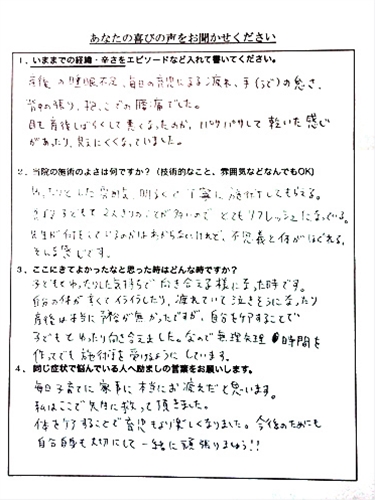 あなたの喜びの声をお聞かせください
1、いままでの経緯・辛さをエピソードなど入れて書いてください。
産後の睡眠不足、毎日の育児による疲れ、手(うで)の怠さ、
背中の張り、抱っこでの腰痛でした。
目も産後しばらくして悪くなったのか、パサパサして乾いた感じ
があったり、見えにくくなっていました。
2、当院の施術のよさは何ですか？（技術的なこと、雰囲気などなんでもOK）
ゆったりとした雰囲気、明るく丁寧に施術してもらえる。
普段子どもと2人きりのことが多いので とてもリフレッシュになっている。
先生が何をしているのかはわからないけれど、不思議と体がほぐれる、
そんな感じです。
3、ここにきてよかったなと思った時はどんな時ですか？
子どもとゆったりした気持ちで向き合える様になった時です。
自分の体が辛くてイライラしたり、疲れていて泣きそうになったり
産後は本当に余裕が無かったですが、自分をケアすることで
子どもとゆったり向き合えました。なので無理矢理 時間を
作ってでも施術を受けるように しています。
4、同じ症状で悩んでいる人へ励ましの言葉をお願いします。
毎日子育てに家事に本当にお疲れだと思います。
私はここで先生に救って頂きました。
体をケアすることで育児もより楽しくなりました。今後のためにも
自分自身も大切にして一緒に頑張りましょう!!